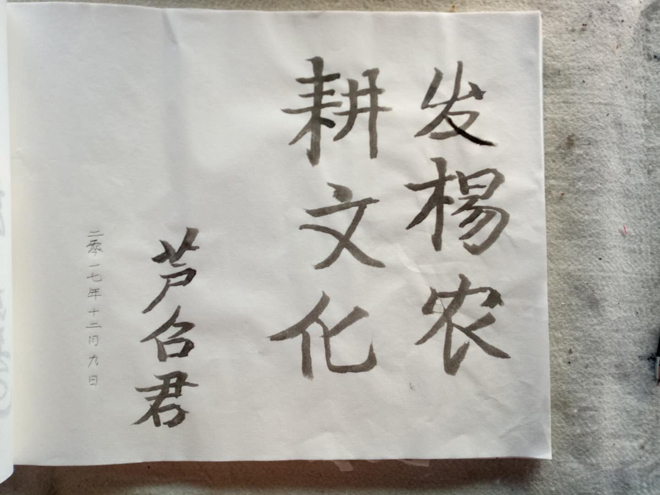 发楊农
耕文化
芦台君
二零一七年十二月九日